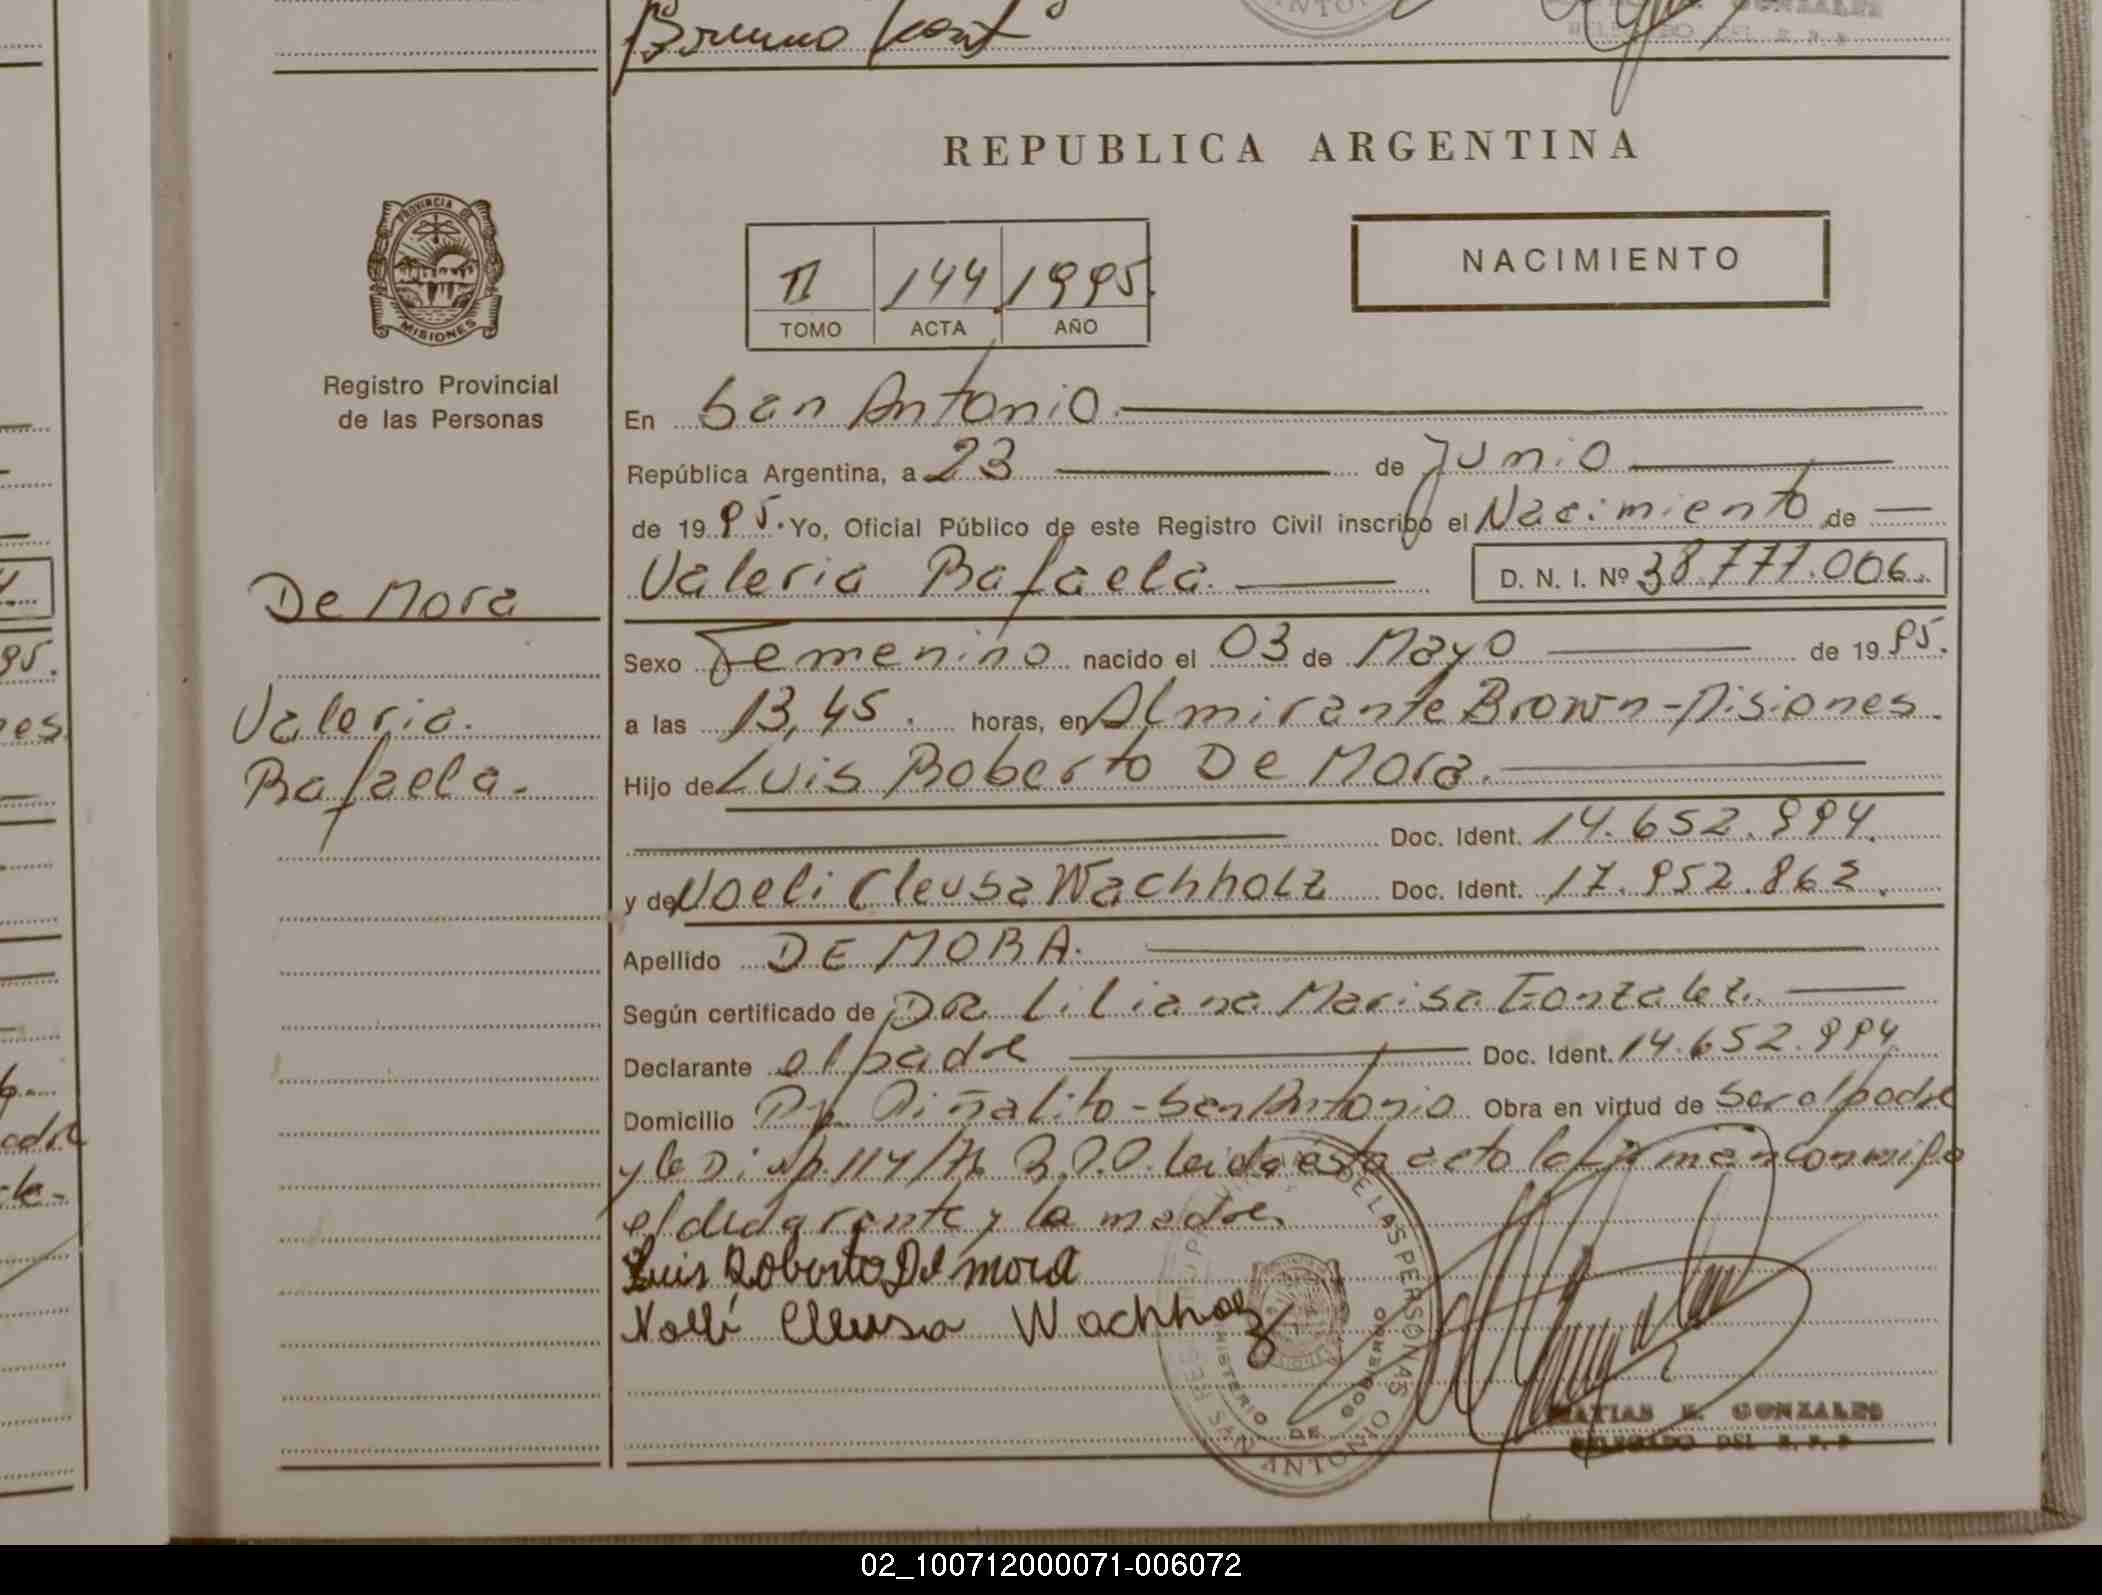 Bruno
REPUBLICA ARGENTINA
PROVINCIA DE
MISIONES
II 144 1995
TOMO ACTA AÑO
NACIMIENTO
Registro Provincial
de las Personas
En San Antonio.
República Argentina, a 23 de Junio
de 1995. Yo, Oficial Público de este Registro Civil inscribo el Nacimiento de
De Mora
Valeria Rafaela. D. N. I. Nº 38.777.006.
Sexo Femenino nacido el 03 de Mayo de 1995.
Valeria.
a las 13,45. horas, en Almirante Brown-Misiones.
Rafaela.-
Hijo de Luis Roberto De Mora.
Doc. Ident. 14.652.994.
y de Noeli Cleusa Wachholz Doc. Ident. 17.952.862.
Apellido DE MORA.
Según certificado de DRA Liliana Marisa Gonzalez.
Declarante el padre Doc. Ident. 14.652.994
Domicilio Piñalito-San Antonio Obra en virtud de ser el padre
y la Disp. 114/76 R.P.P. leida esta acta la firman conmigo
el declarante y la madre.
Luis Roberto De Mora
Noelí Cleusa Wachholz
DE LAS PERSONAS
MINISTERIO DE GOBIERNO
SAN ANTONIO
MATIAS E. GONZALES
DELEGADO DEL R. P. P.
02_100712000071-006072